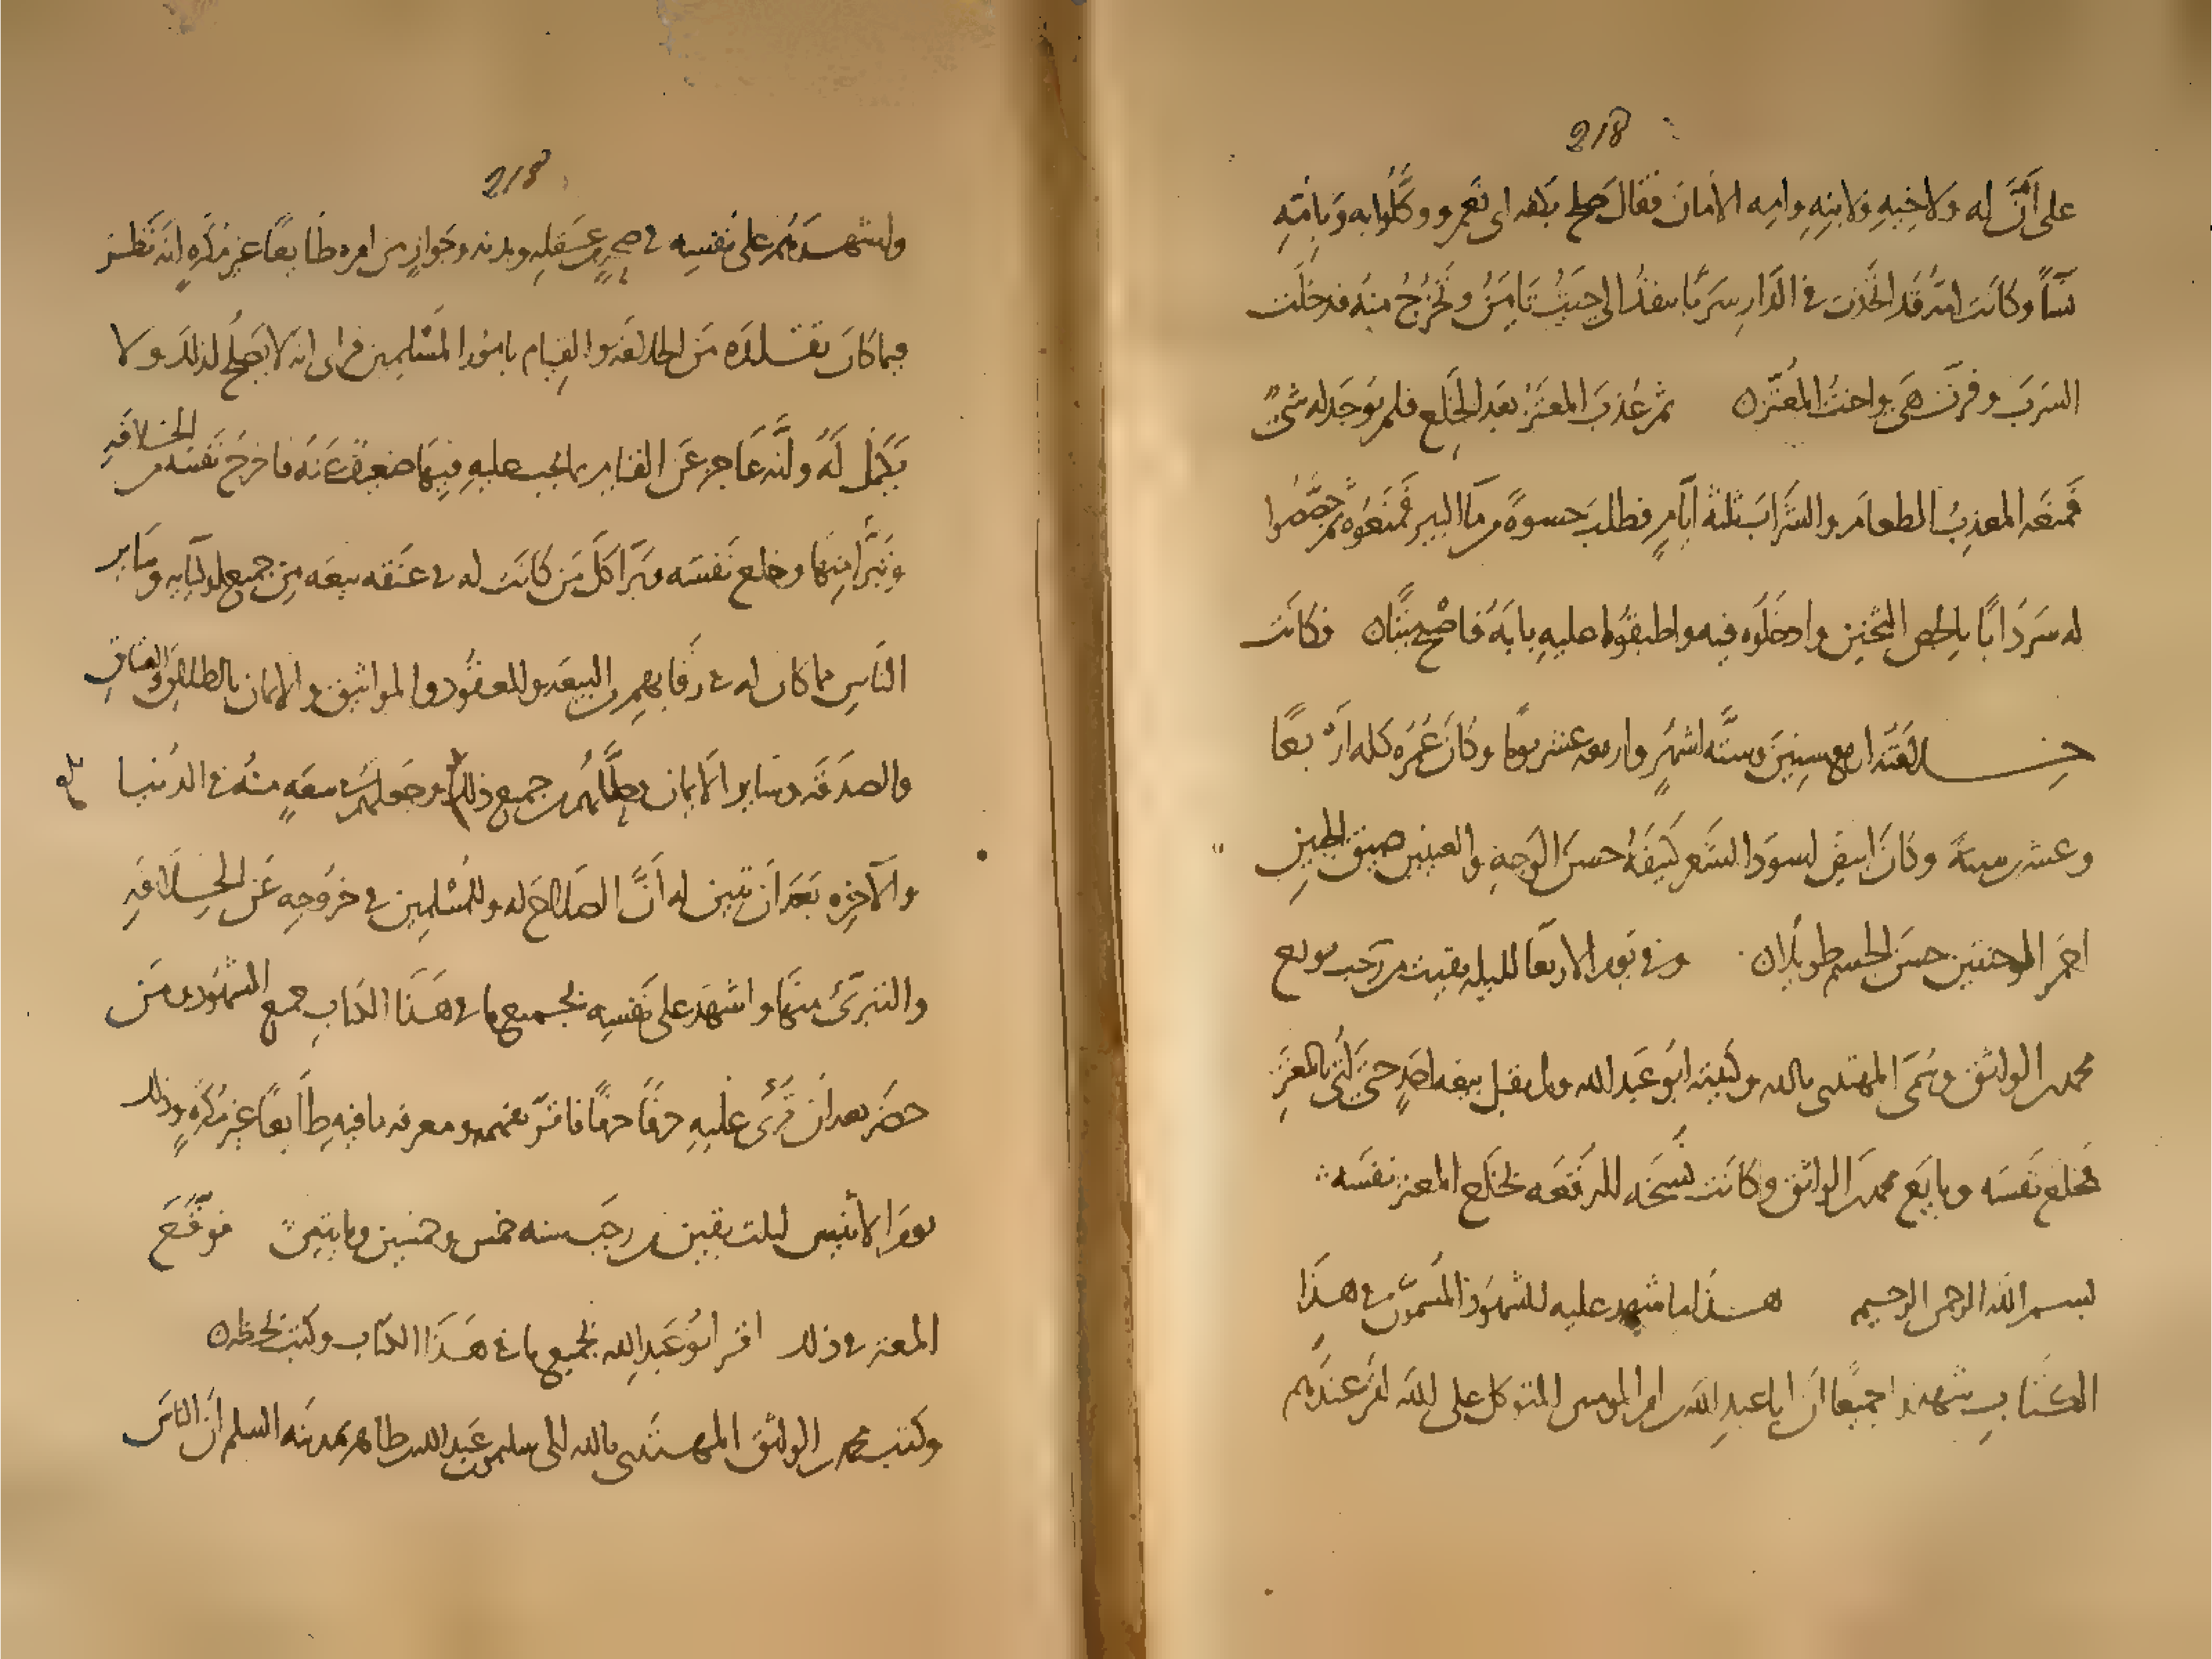 218
على أنَّ له ولاخيهِ ولابنِهِ وامِه الأمان فقال صلح بكفه اى نعم ووكَّلوا به وبامِّهِ
نسآً وكانت امّه قد اتخذت في الدار سَرَبًا ينفذ الى حيثُ تامَنُ وتخرُجُ منه فدخلت
السرَبَ وفرّت هى واخت المعتزّ ثم عذب المعتز بعد الخلع فلم يوجد له شىٌ
فمنعَه المعذبُ الطعام والشراب ثلثة أيّامٍ فطلب حسوةً من مآ البير فمنعوه ثم جصّصوا
له سردابًا بالجص الثخين وادخلوه فيه واطبقوا عليه بابه فاصبح ميّتًا فكانت
خلافته اربع سنين وستّه اشهرٍ واربعه عشر يومًا وكان عمُرُه كله اربعًا
وعشرين سنةً وكان ابيض اسود الشعر كثيفَهُ حسن الوجهِ والعينين ضيق الجبين
احمر الوجنتين حسن الجسم طويلا وفى يوم الاربعا لليله بقيت من رجب بويع
محمد بن الواثق وسُمّى المهتدى بالله وكنيته ابو عبد الله ولم يقبل بيعه احدٍ حتى اُتى بالمعتزِ
فخلع نفسَه وبايَع محمد بن الواثق وكانت نُسخه الرقعه بخلع المعتز نفسَه
بسم الله الرحمن الرحيم هذا ما شهد عليه الشهود المُسمّون في هذا
الكتاب شهدوا جميعًا انّ ابا عبد الله بن امير المومنين المتوكل على الله اقرّ عندهم
218
واشهدهم على نفسِه فى صحةٍ من عقله وبدنه وجوازٍ من امره طايعًا غير مُكرهٍ انه نظر
فيما كان تقلده من الخلافه والقيام بامور المسلمين فراى انه لا يصلح لذلك ولا
يكمل له وانّه عاجز عن القيام بما يجب عليه فيها ضعيفٌ عنه فاخرج نفسه من الخلافهِ
وتبرّا منها وخلع نفسه وبرّا كلّ من كانت له فى عنقه بيعه من جميع اوليآيه وساير
الناس مما كان له فى رقابهم من البيعه والعقود والمواثيق والايمان بالطلاق والعتاق
والصدقه وساير الايمان وحلّلهُم من جميع ذلك وجعلهم فى سعةٍ منه فى الدنيا
والآخره بعد ان تبين له انّ الصلاح له وللمُسلمين فى خروجه عن الخلافه
والتبرّى منها واشهد على نفسه بجميع ما فى هذا الكتاب جميع الشهود من
حضر بعد ان قُرى عليه حرفًا حرفًا فاقرّ بفهمه ومعرفه ما فيه طايعًا غير مُكرهٍ وذلك
يوم الاثنين لثلث بقين من رجب سنه خمس وخمسين ومايتين فوقّع
المعتز فى ذلك اقر ابو عبد الله بجميع ما فى هذا الكتاب وكتب بخطه
وكتب محمد بن الواثق المهتدى بالله الى سليمن بن عبد الله بن طاهر بمدينه السلم ان الناس